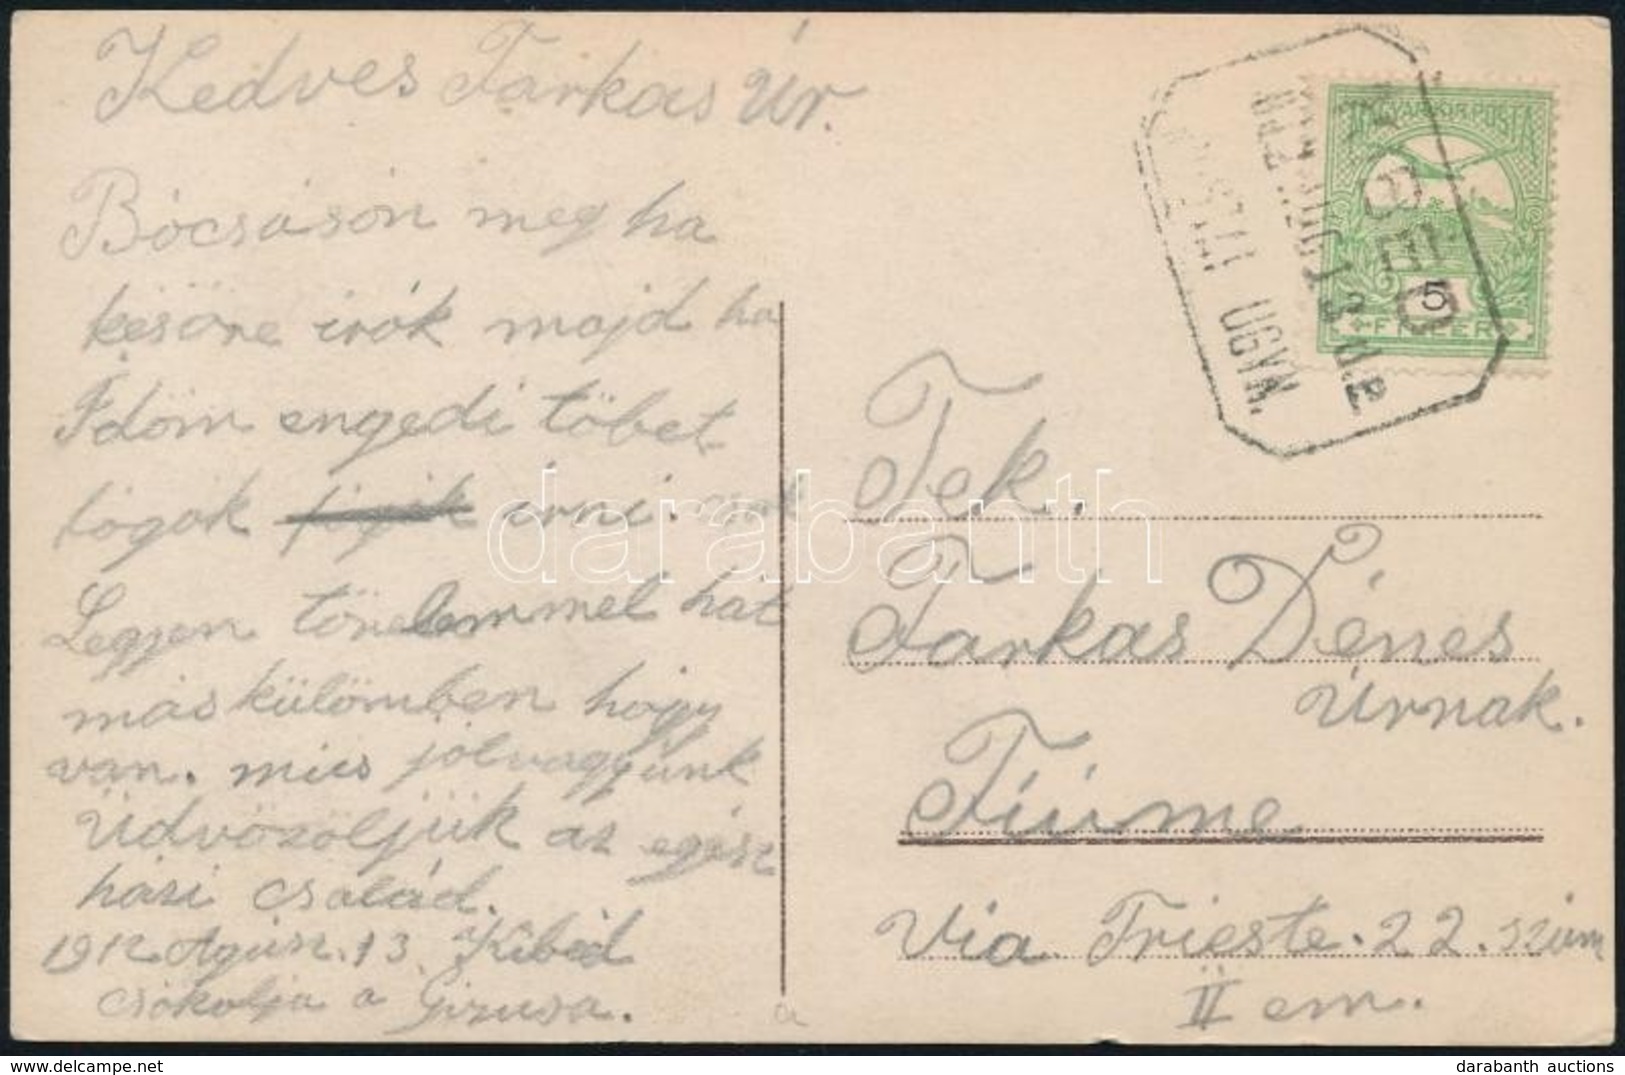 Kedves Farkas Úr.
Bócsáson meg ha
késöre irók majd ha
Idöm engedi töbet
fogok irni. csak
Legyen törelemmel hát
máskülömben hogy
van. mics jólvagyunk
Üdvözöljük az egész
házi család.
1912 Agúsz. 13. Kibéd
csókolja a Gizusa.
a
MAGYAR KIR. POSTA
5
FILLÉR
KIBÉD
POSTAI ÜGYN.
Tek.
Farkas Dénes
Úrnak.
Fiúme
Via Trieste. 22. szám
II em.
darabanth
darabanth auctions